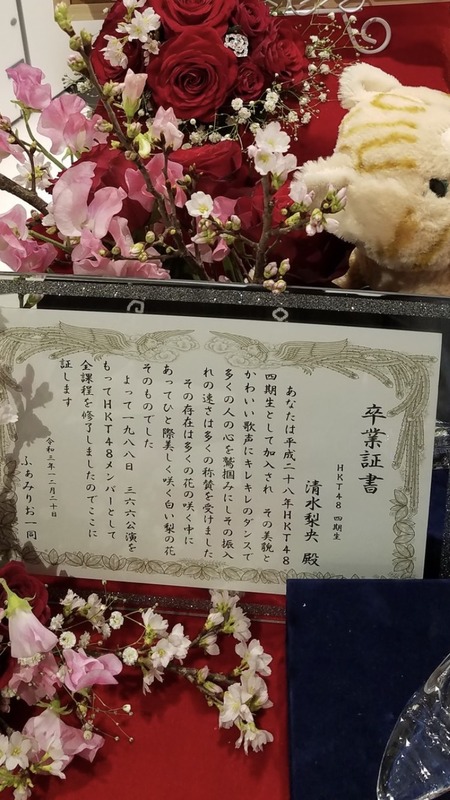 卒業証書
HKT48 四期生
清水梨央 殿
あなたは平成二十八年HKT48
四期生として加入され その美貌と
かわいい歌声にキレキレのダンスで
多くの人の心を鷲掴みにしその振入
れの速さは多くの称賛を受けました
その存在は多くの花の咲く中に
あってひと際美しく咲く白い梨の花
そのものでした
よって一九八八日 三六六公演を
もってHKT48メンバーとして
全課程を修了しましたのでここに
証します
令和三年一二月二十日
ふぁみりお一同